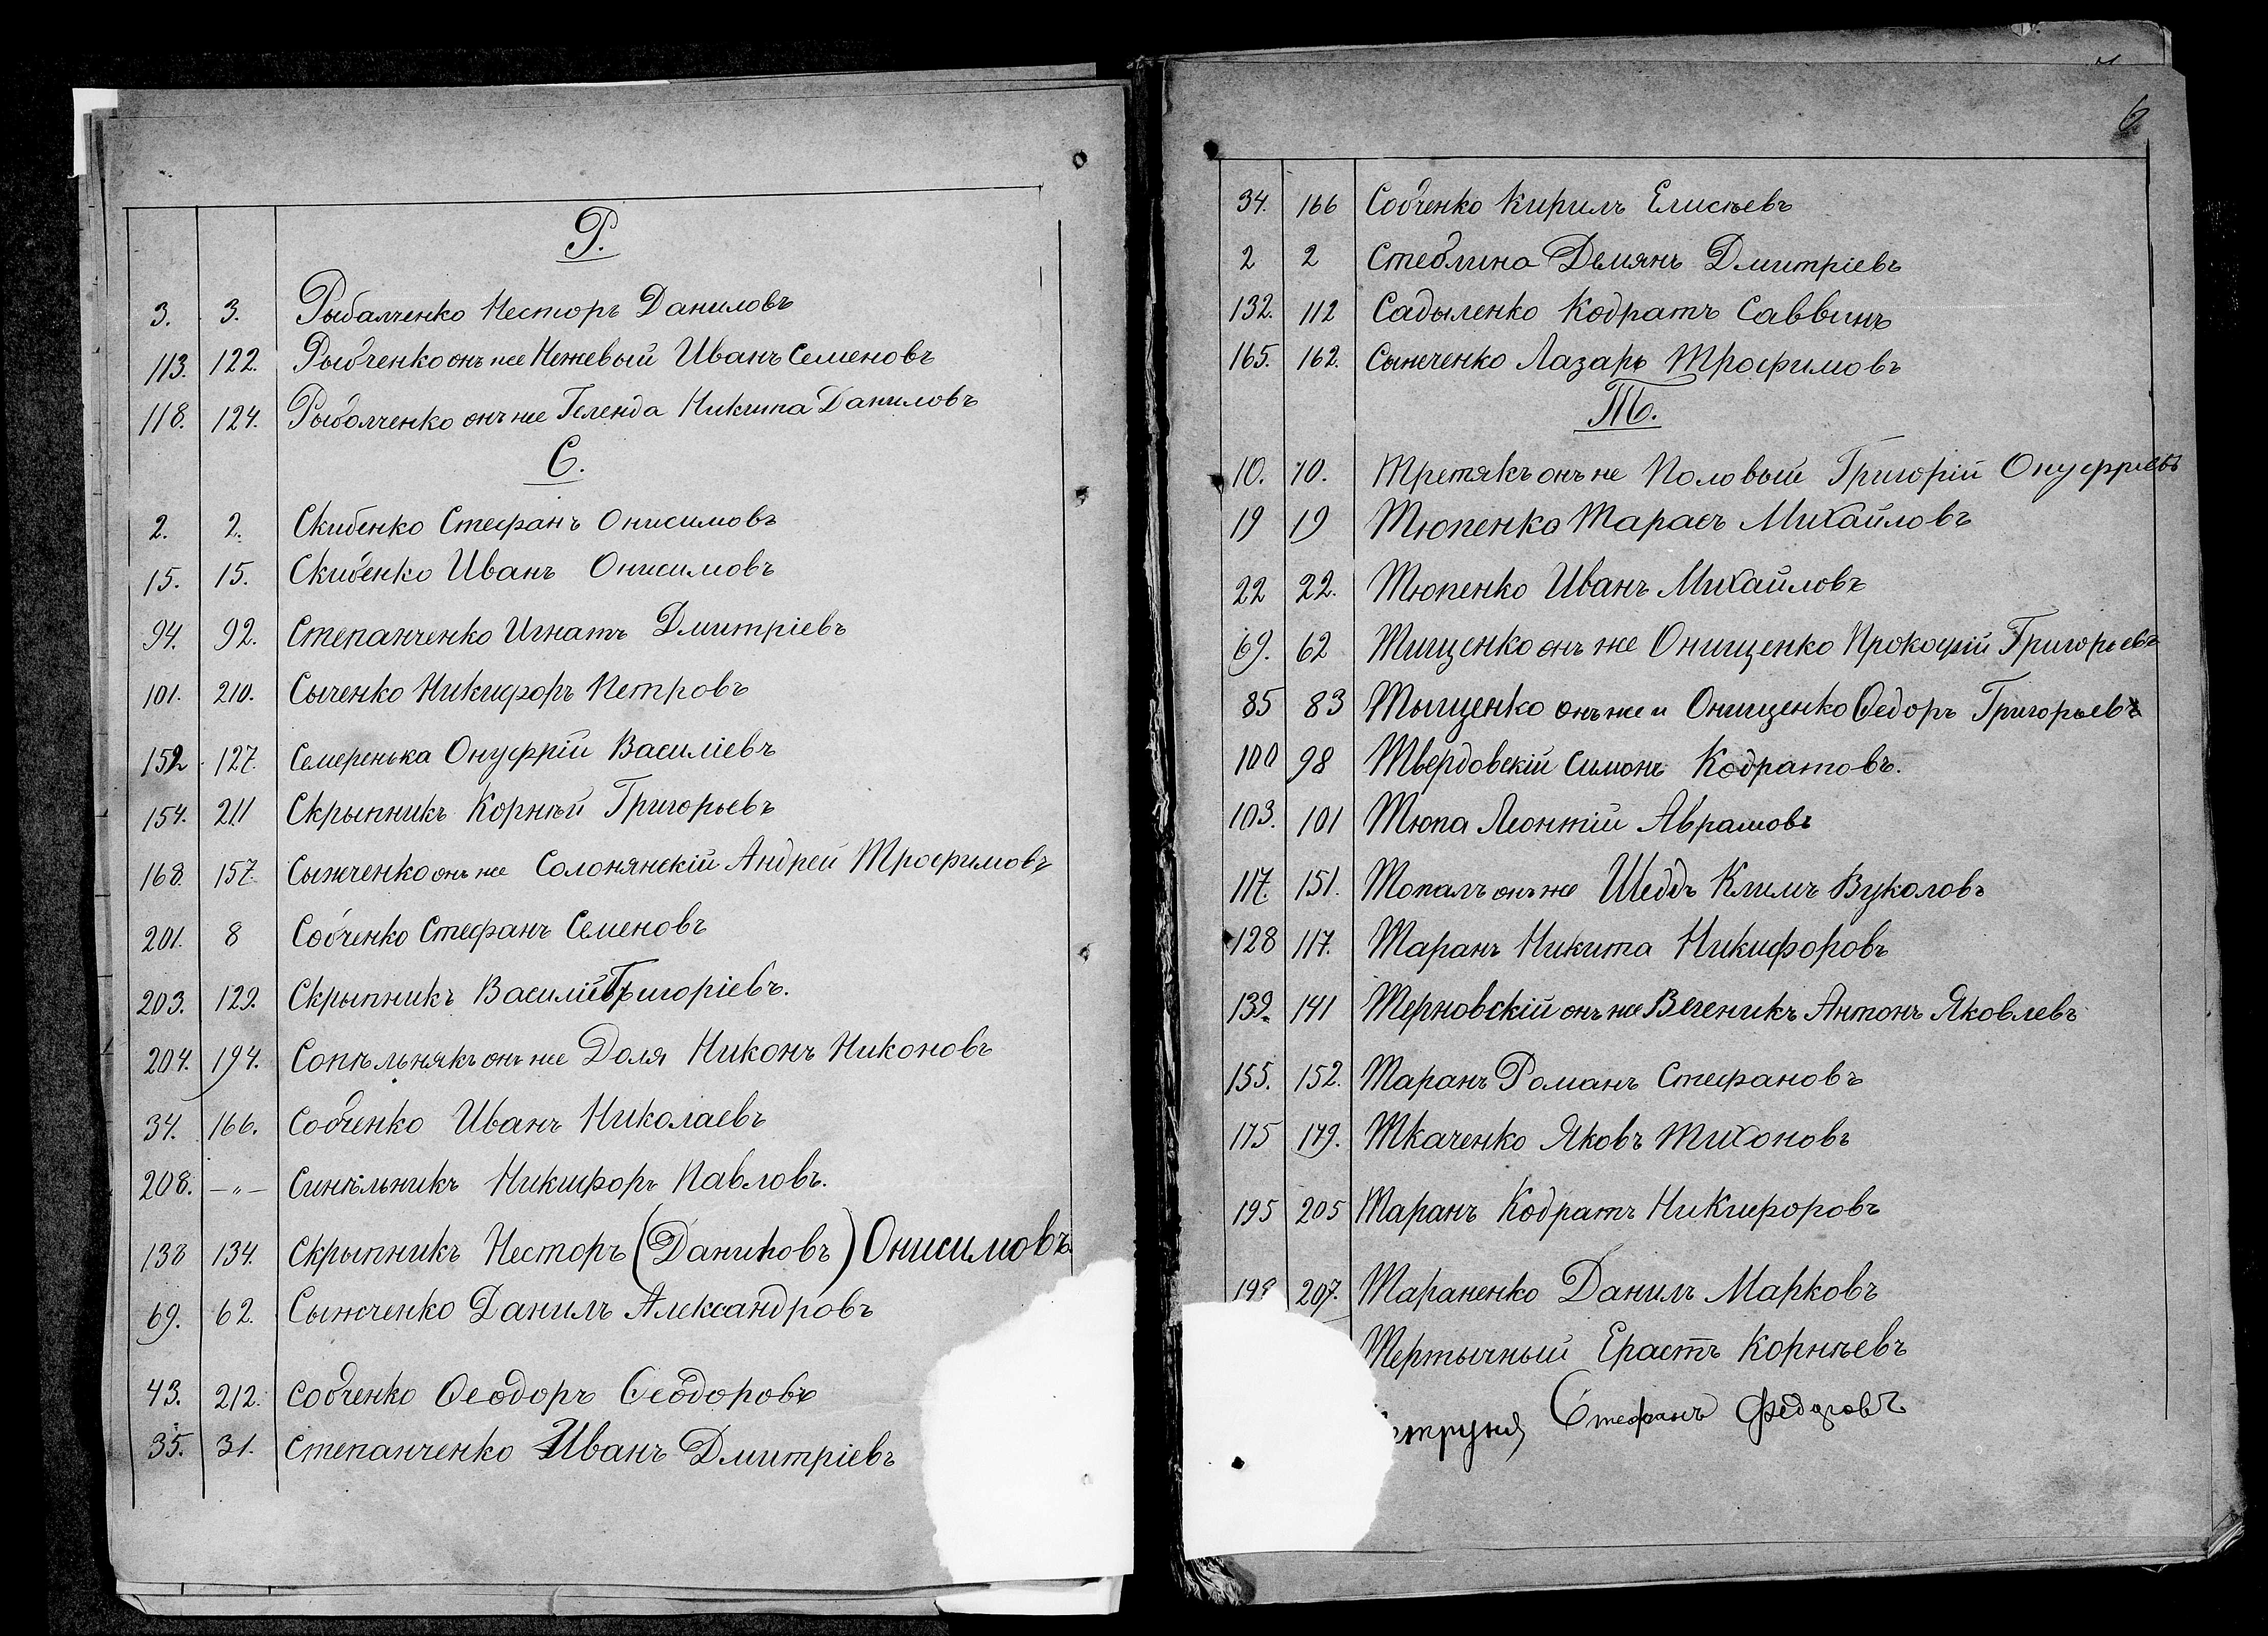 Р.
3. 3. Рыбалченко Несторъ Даниловъ
113. 122. Рыбченко онъ же Нежевый Иванъ Семеновъ
118. 124. Рыбалченко онъ же Геленда Никита Даниловъ
С.
2. 2. Скибенко Стефанъ Онисимовъ
15. 15. Скибенко Иванъ Онисимовъ
94. 92. Степанченко Игнатъ Дмитріевъ
101. 210. Сыченко Никифоръ Петровъ
152 127. Семеренька Онуфрій Василіевъ
154. 211 Скрыпникъ Корнѣй Григорьевъ
168. 157. Сыжченко онъ же Солонянскій Андрей Трофимовъ
201. 8 Собченко Стефанъ Семеновъ
203. 129. Скрыпникъ Василій Григоріевъ.
204. 194. Сопѣльнякъ онъ же Доля Никонъ Никоновъ
34. 166. Собченко Иванъ Николаевъ
208. —„— Синѣльникъ Никифоръ Павловъ.
138 134. Скрыпникъ Несторъ (Даниловъ) Онисимовъ.
69. 62. Сыжченко Данилъ Александровъ
43. 212. Собченко Ѳеодоръ Ѳеодоровъ
35. 31. Степанченко Иванъ Дмитріевъ
6
34. 166 Собченко Кирилъ Елисѣевъ
2 2 Стеблина Демянъ Дмитріевъ
132. 112 Садыленко Кодратъ Саввинъ
165. 162. Сыжченко Лазарь Трофимовъ
Т.
10. 10. Третякъ онъ же Половый Григорій Онуфріевъ
19 19 Тюпенко Тарасъ Михайловъ
22 22. Тюпенко Иванъ Михайловъ
69. 62 Тищенко онъ же Онищенко Прокофій Григорьевъ
85 83 Тыщенко онъ же и Онищенко Ѳедоръ Григорьевъ
100 98 Твердовскій Симонъ Кодратовъ.
103. 101 Тюпа Леонтій Аврамовъ
117. 151. Топалъ онъ же Шеддъ Климъ Вуколовъ
128 117. Таранъ Никита Никифоровъ
139. 141 Терновскій онъ же Вегеникъ Антонъ Яковлевъ
155. 152. Таранъ Романъ Стефановъ
175 179. Ткаченко Яковъ Тихоновъ
195 205 Таранъ Кодратъ Никифоровъ
207. Тараненко Данилъ Марковъ
Тертычный Ерастъ Корнѣевъ
Стефанъ Федоровъ